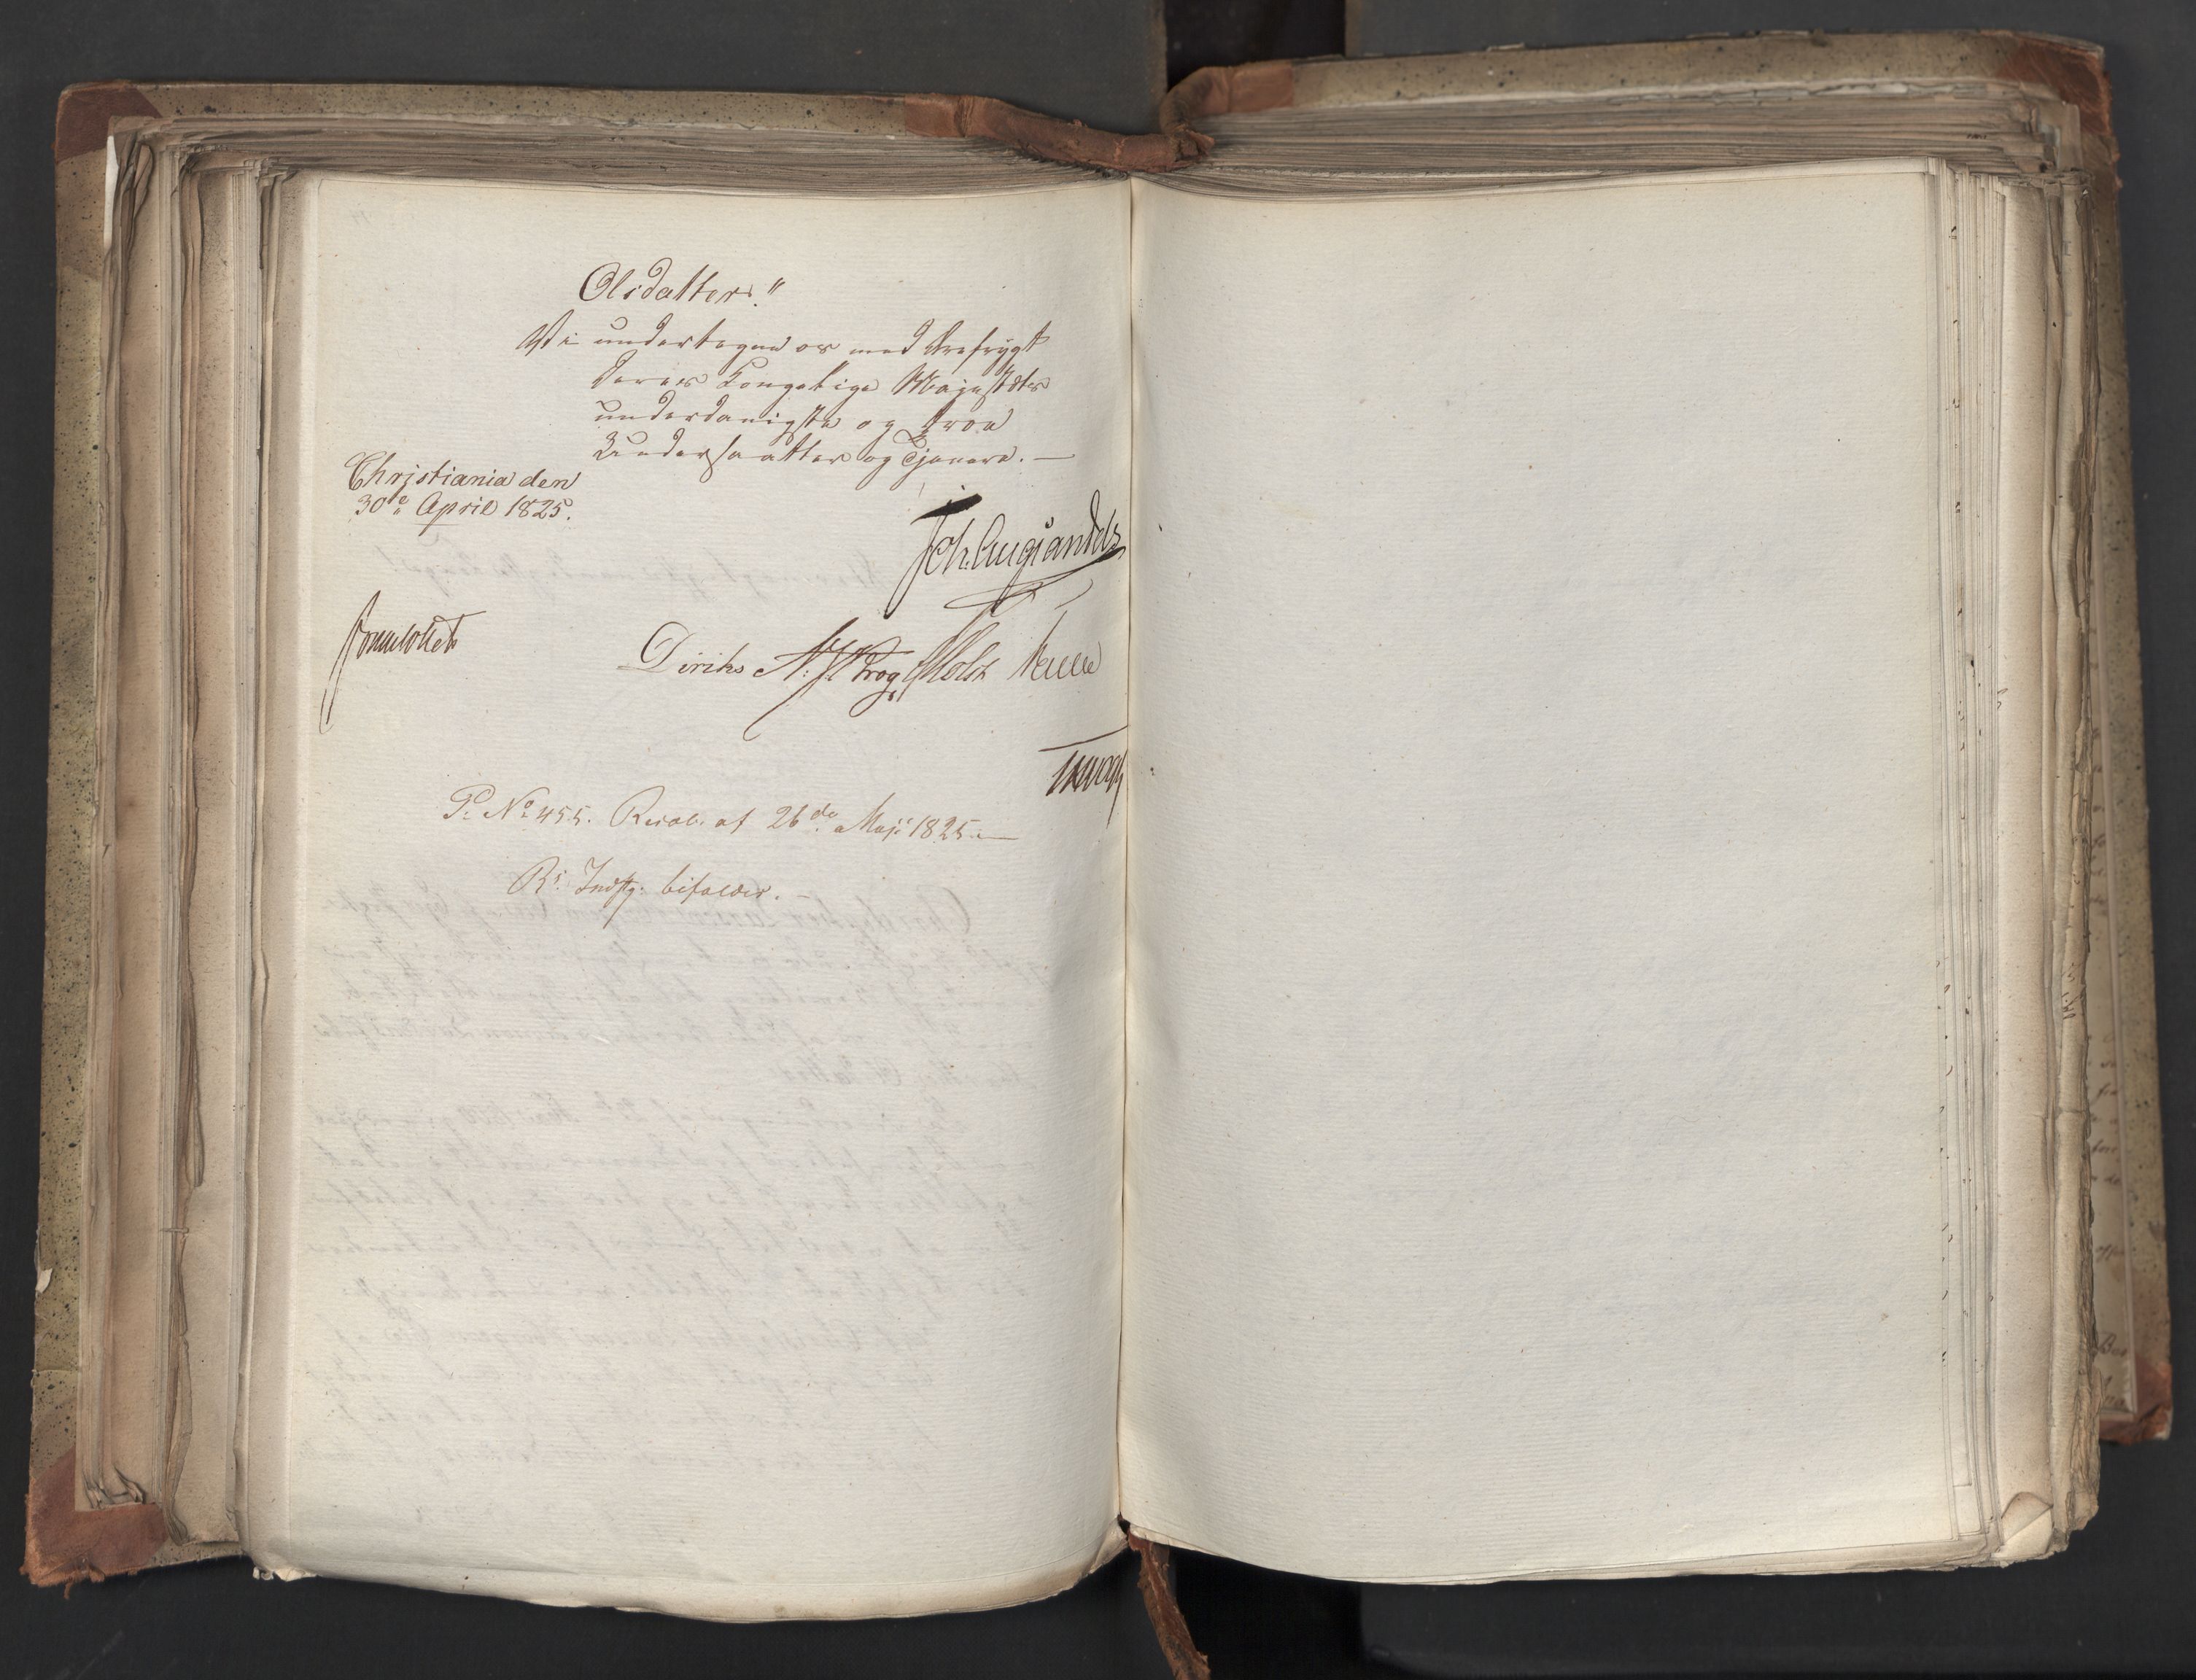 Olsdatter."
Vi undertegne os med Ærefrygt
Deres Kongelige Majestæts
underdanigste og troe
Undersaatter og Tjenere. —
Christiania den
30te April 1825.
Joh. Aug. Sandels
Sommerfeldt
Diriks N: J. Krog Holst
P: No 455. Resol. af 26de Maji 1825. —
Rs. Indstg: bifaldes. —